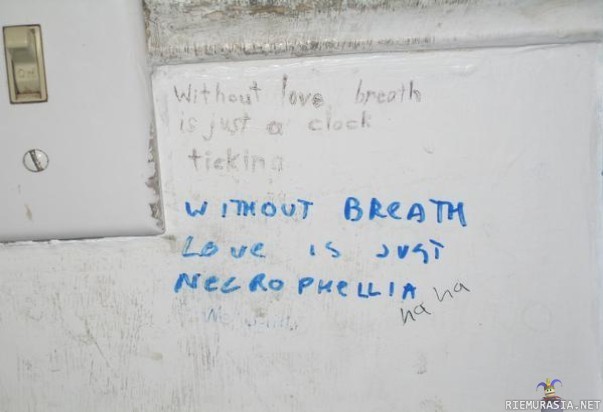 ON
Without love breath
is just a clock
ticking
WITHOUT BREATH
LOVE IS JUST
NECROPHELLIA
ha ha
RIEMURASIA.NET